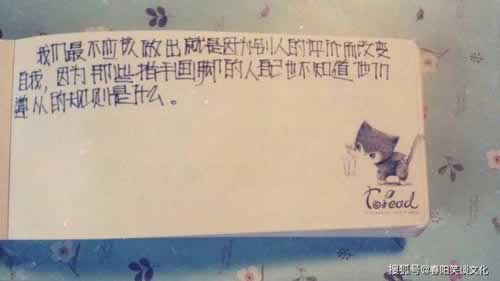 我们最不应该做出就是因为别人的评价而改变
自我,因为那些指手画脚的人自己也不知道他们
遵从的规则是什么。
Toread
搜狐号@春阳笑谈文化